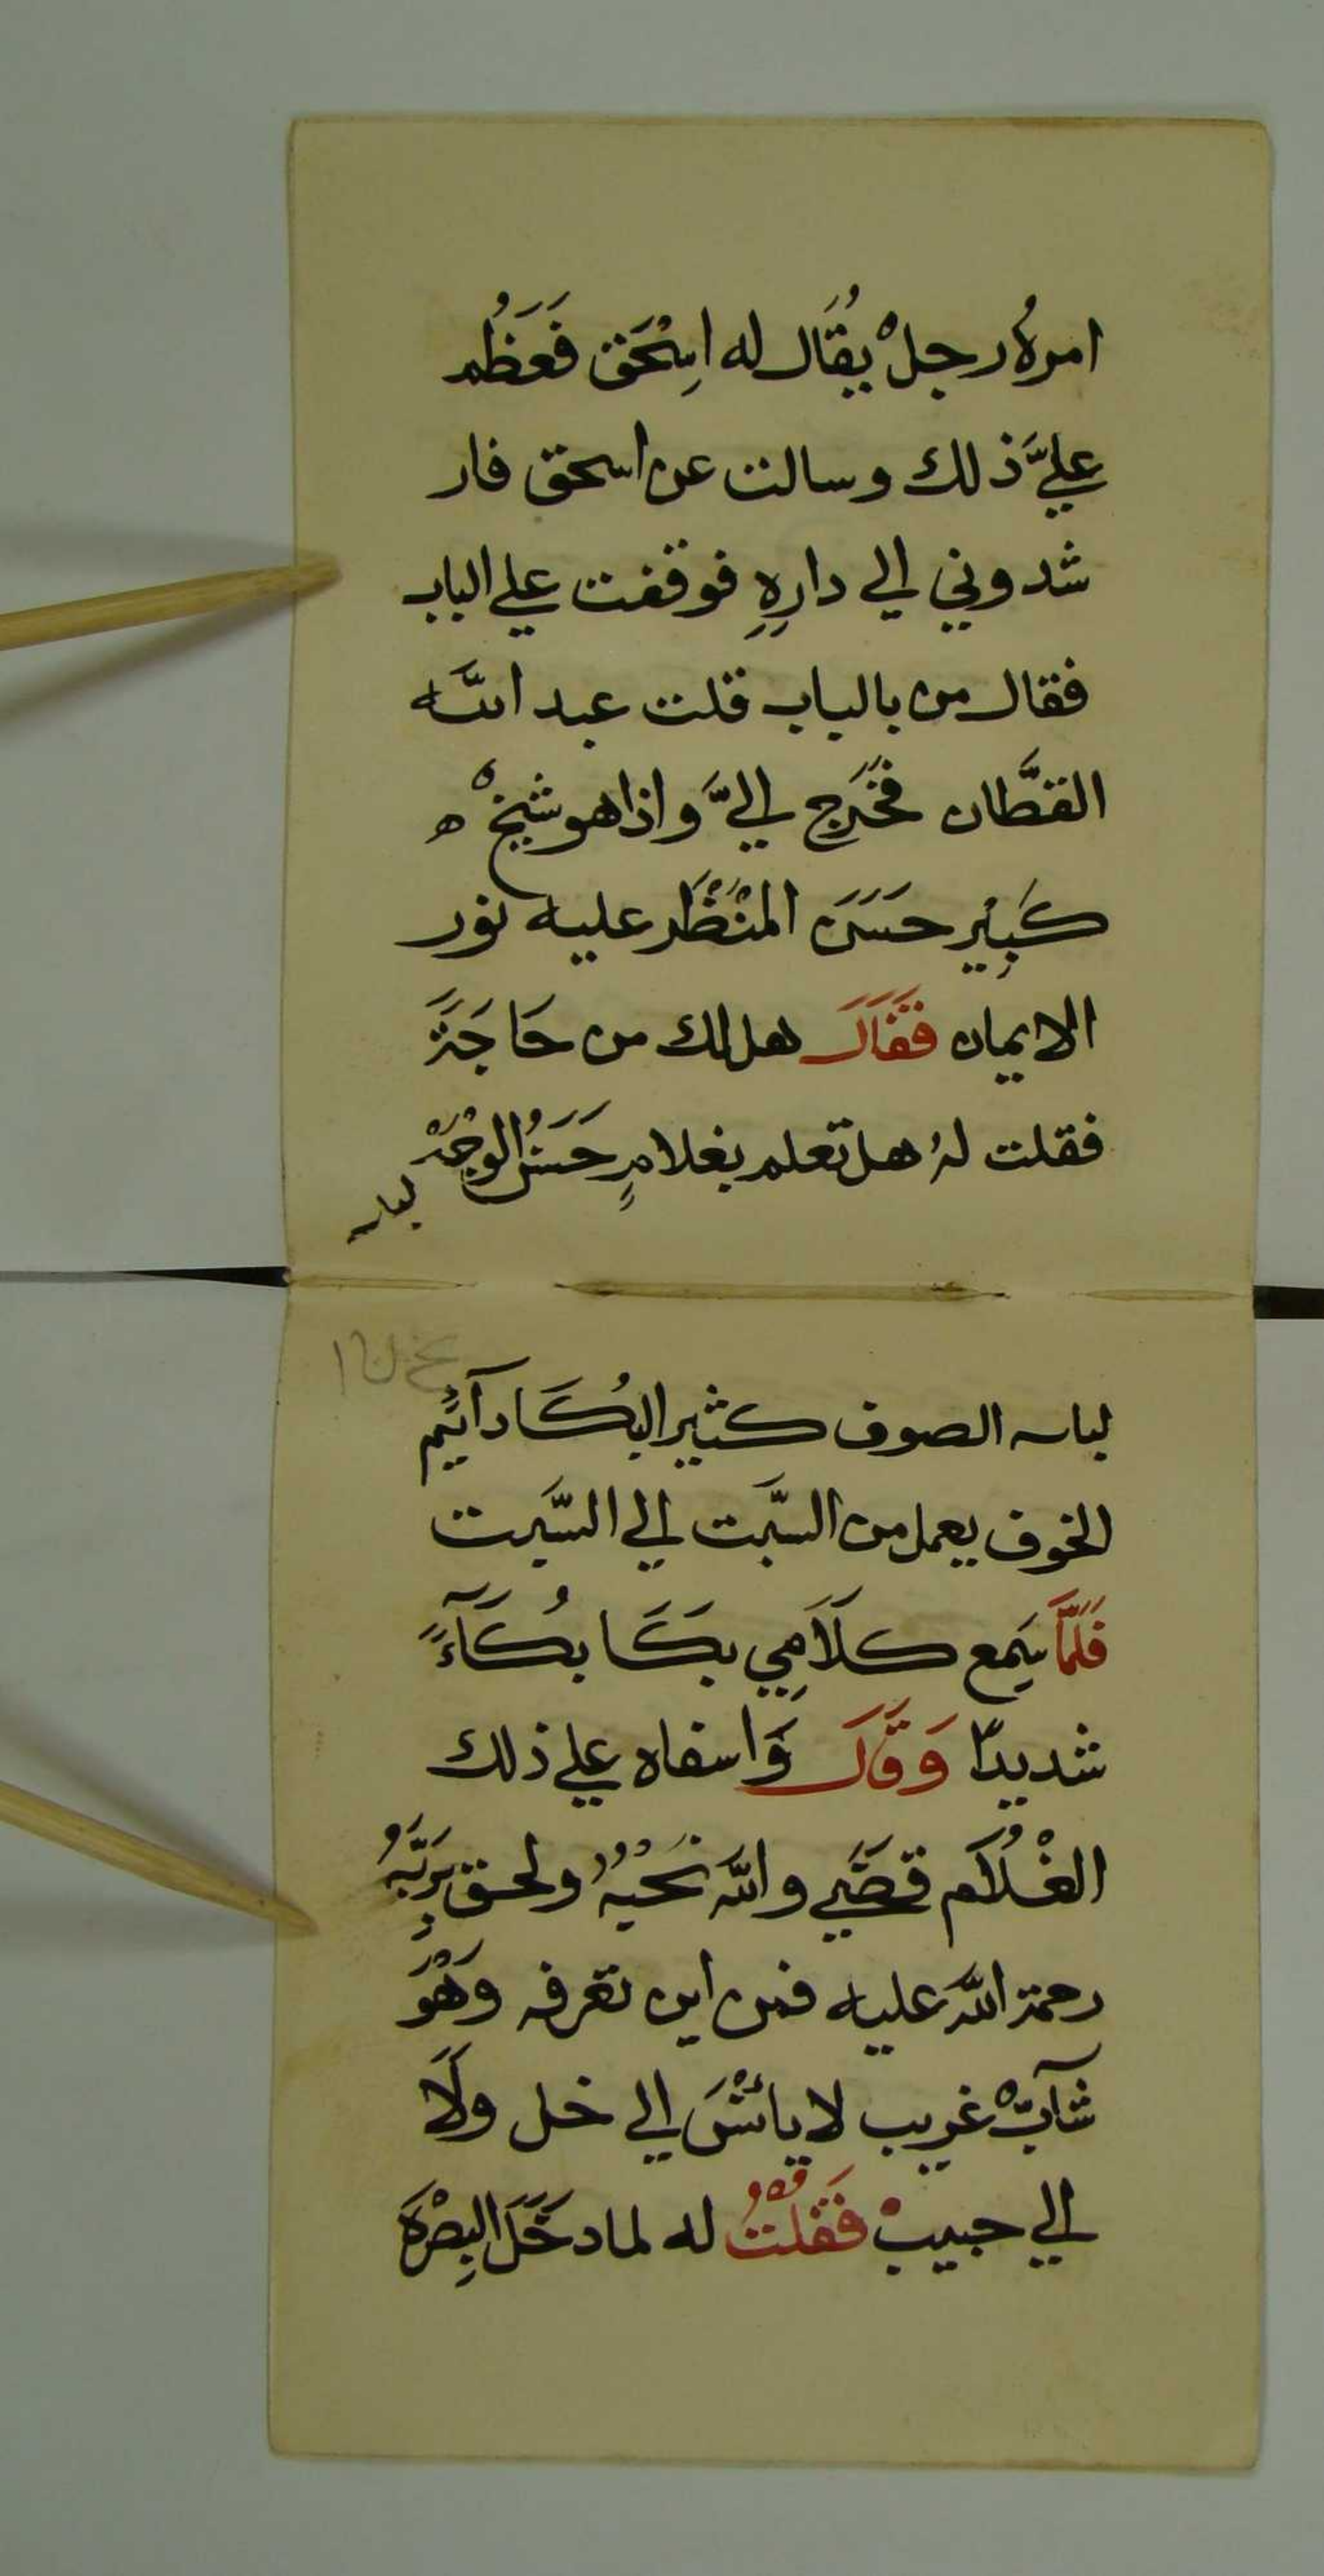 امرهُ رجلْ يُقَال له اسِحَق فَعَظُم
عليَّ ذلك وسالت عن اسحق فار
شدوني الي دارِهِ فوقفت علي الباب
فقال من بالباب قلت عبد الله
القطَّان فَخَرَج اليَّ واذا هو شيخْ ه
كَبِيْر حَسَن المنْظَر عليه نور
الايمان فَقَالَ هل لك من حَاجَةً
فقلت لهُ هل تعلم بغلامٍ حَسَنُ الوجْهْ
لباس
لباس الصوف كثير البُكَا دآئِم
الخوف يعمل من السَّبت الي السَّبت
فَلَمَّا سَمِع كَلَامِي بَكَا بُكَآءً
شديدًا وَقَالَ وَاسفاه علي ذلك
الغْلُام قَضَي والله نَحْبَهُ ولحق بِرَبِّهُ
رحمة الله عليه فمن اين تعرفه وَهُو
شآبْ غريب لا يائنَس الي خل ولَا
الي حبيبْ فَقُلْتُ له لما دَخَلَ البِصْرَة